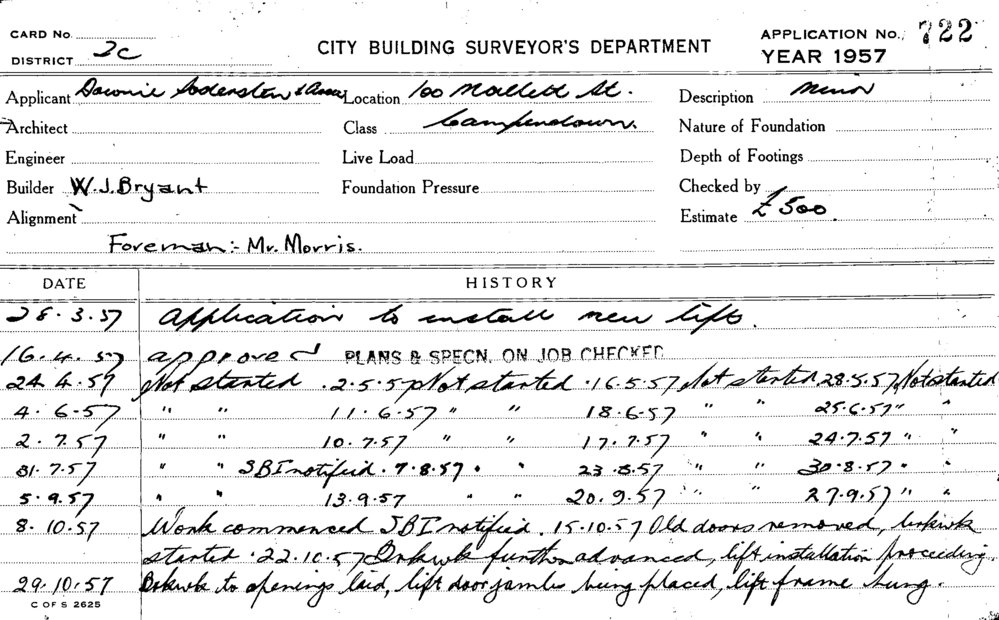 CARD No.
DISTRICT 2C
CITY BUILDING SURVEYOR'S DEPARTMENT
APPLICATION No. 722
YEAR 1957
Applicant Downie Sodersten & Location 100 Mallett St. Description Minor
Architect Class Camperdown. Nature of Foundation
Engineer Live Load Depth of Footings
Builder W.J. Bryant Foundation Pressure Checked by
Alignment Estimate £500.
Foreman:- Mr. Morris.
DATE HISTORY
28.3.57 Application to install new lift.
16.4.57 approved PLANS & SPECN. ON JOB CHECKED
24.4.57 Not started .2.5.57 Not started .16.5.57 Not started 28.5.57 Not started
4.6.57 " " 11.6.57 " " 18.6.57 " " 25.6.57 " "
2.7.57 " " 10.7.57 " " 17.7.57 " " 24.7.57 " "
31.7.57 " " SBI notified. 7.8.57 " " 23.8.57 " " 30.8.57 " "
5.9.57 " " 13.9.57 " " 20.9.57 " " 27.9.57 " "
8.10.57 Work commenced SBI notified. 15.10.57 Old doors removed, brkwk
started. 22.10.57 Brkwk further advanced, lift installation proceeding.
29.10.57 Brkwk to openings laid, lift door jambs being placed, lift frame hung.
C OF S 2625